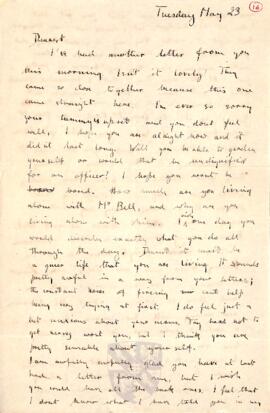 Tuesday May 23
16
Dearest
I've had another letter from you
this morning. Isn't it lovely! They
came so close together because this one
came straight here. I'm ever so sorry
your tummy is upset and you don't feel
well, I hope you are alright now and it
didn't last long. Will you be able to garden
yourself or would that be undignified
for an officer! I hope you won't be
bored. How really are you living
alone with Mr Bell, and why are you
living alone with him. I wish one day you
would describe exactly what you do all
through the day. It must be
a queer life that you are living. It sounds
pretty awful in a way from your letters;
the constant noise of must
being very trying at first. I do feel just a
bit anxious about you. Try hard not to
get
pretty sensible about yourself.
I am awfully awfully glad you have at last
had a letter from me, but I wish
you could have all the back ones. I feel that
I don't know what I have told you in my